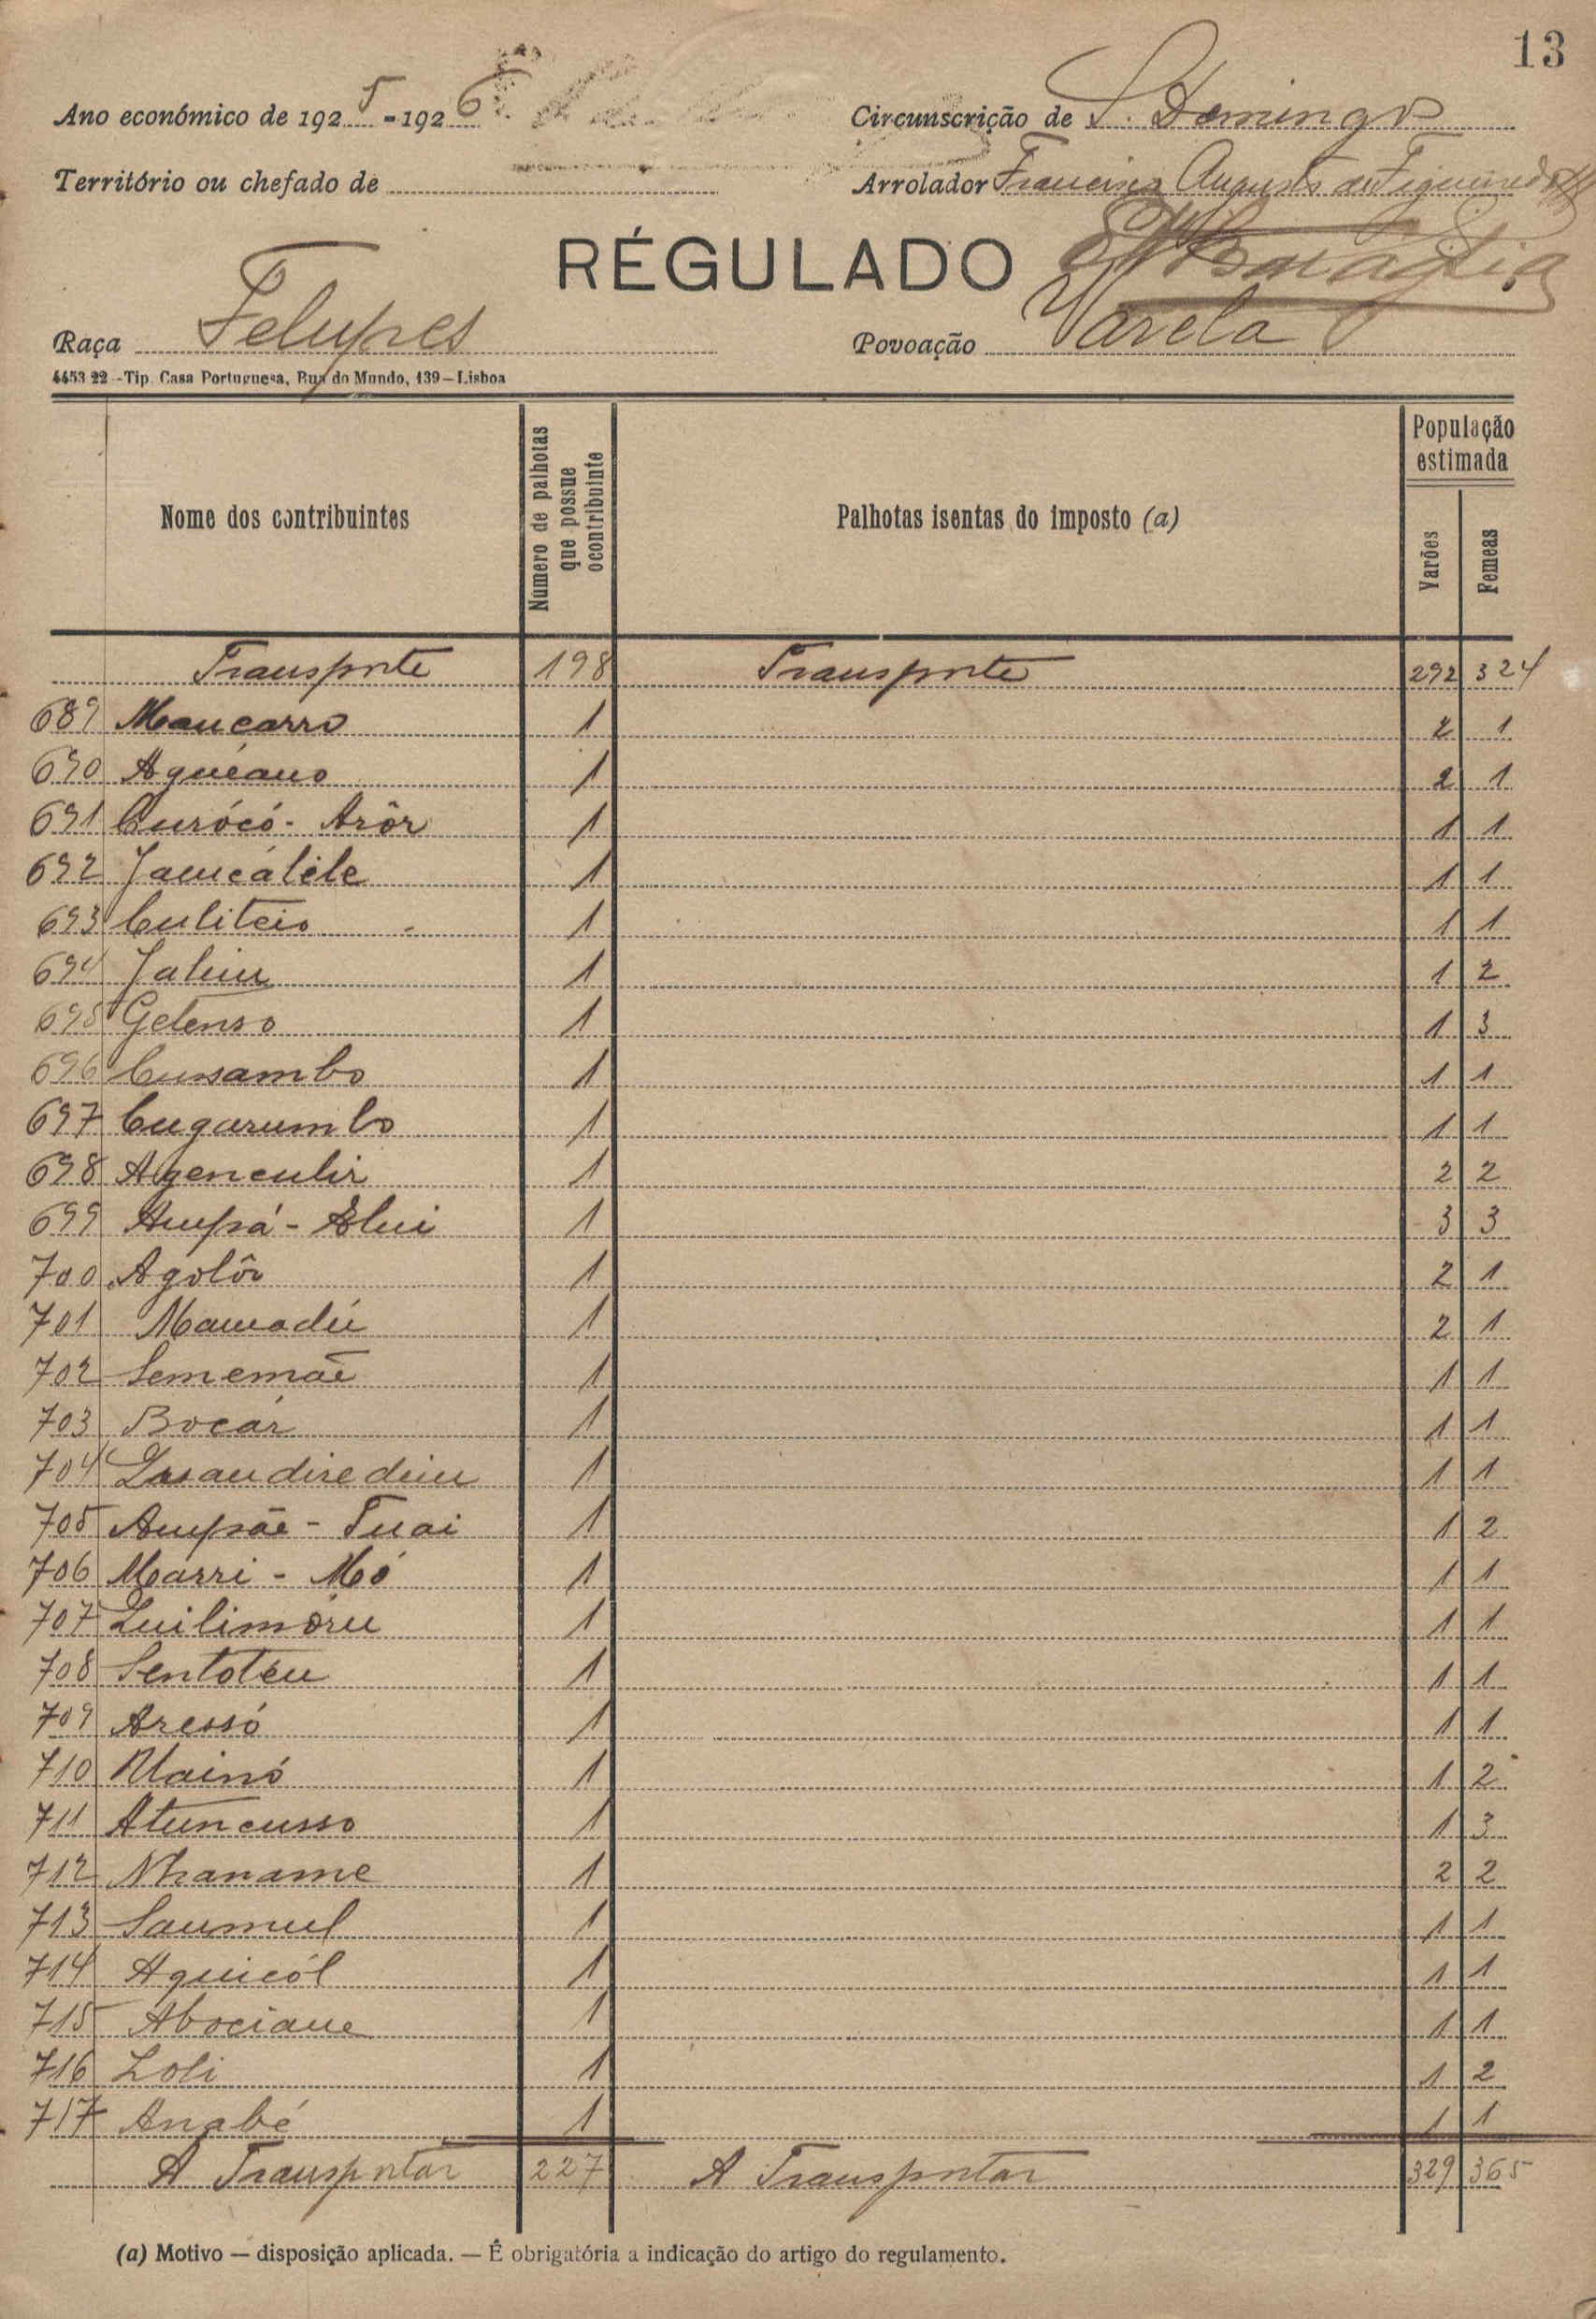 13
Ano económico de 1925-1926 Circunscrição de S. Domingos
Território ou chefado de Arrolador Francisco Augusto de Figueiredo
RÉGULADO
Raça Felupes Povoação Varela
4453 22 - Tip. Casa Portuguesa, Rua do Mundo, 139 — Lisboa
Nome dos contribuintes Numero de palhotas que possue o contribuinte Palhotas isentas do imposto (a) População estimada Varões Femeas
Transporte 198 Transporte 292 324
689 Maucarro 1 2 1
690 Aqueano 1 2 1
691 Curócó - Arôr 1 1 1
692 Jamcálile 1 1 1
693 Culiteio 1 1 1
694 Jaliu 1 1 2
695 Gelenso 1 1 3
696 Cussambo 1 1 1
697 Cugarumbo 1 1 1
698 Agenculir 1 2 2
699 Ampá - Elui 1 3 3
700 Agolôr 1 2 1
701 Mamadú 1 2 1
702 Sememãe 1 1 1
703 Bocár 1 1 1
704 1 1 1
705 Ampãe - Tuai 1 1 2
706 Marri - Mó 1 1 1
707 Luilimôru 1 1 1
708 Sentotéu 1 1 1
709 Aressó 1 1 1
710 Mainó 1 1 2
711 Atuncusso 1 1 3
712 Nhaname 1 2 2
713 Saumul 1 1 1
714 Aquicól 1 1 1
715 Abociaue 1 1 1
716 Loli 1 1 2
717 Anabé 1 1 1
A Transportar 227 A Transportar 329 365
(a) Motivo — disposição aplicada. — É obrigatória a indicação do artigo do regulamento.